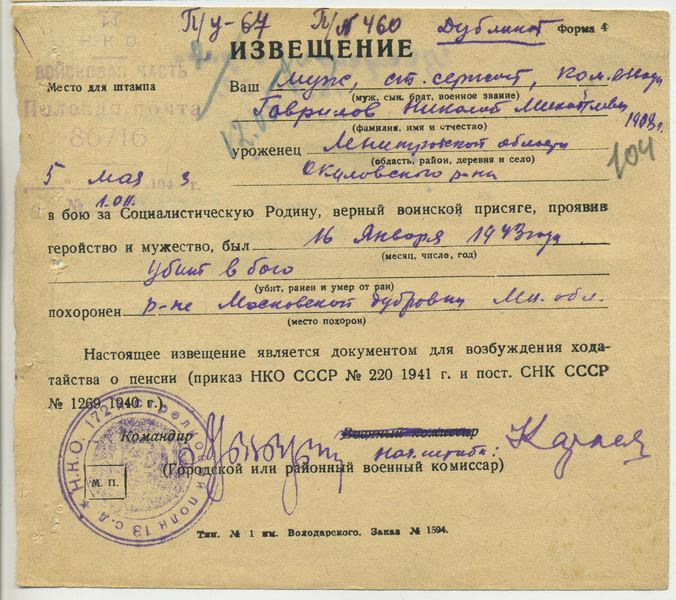 П/у-67 П/№ 460 Дубликат Форма 4
ИЗВЕЩЕНИЕ
НКО
ВОЙСКОВАЯ ЧАСТЬ
Полевая почта
86716
Место для штампа
5 мая 1943 г.
№
Ваш муж, ст. сержант, ком. отд.
(муж, сын, брат, военное звание)
Гаврилов Николай Михайлович
(фамилия, имя и отчество)
1908 г.
уроженец Ленинградской области
(область, район, деревня и село)
104
Окуловского р-на
в бою за Социалистическую Родину, верный воинской присяге, проявив
геройство и мужество, был 16 Января 1943 года
(месяц, число, год)
убит в бою
(убит, ранен и умер от ран)
похоронен р-не Московской Дубровки Лен. обл.
(место похорон)
Настоящее извещение является документом для возбуждения хода-
тайства о пенсии (приказ НКО СССР № 220 1941 г. и пост. СНК СССР
№ 1269 1940 г.).
Командир Военный комиссар
нач. штаба:
(Городской или районный военный комиссар)
М. П.
Н.К.О. 172 стрелковый полк 13 с.д.
Тип. № 1 им. Володарского. Заказ № 1594.